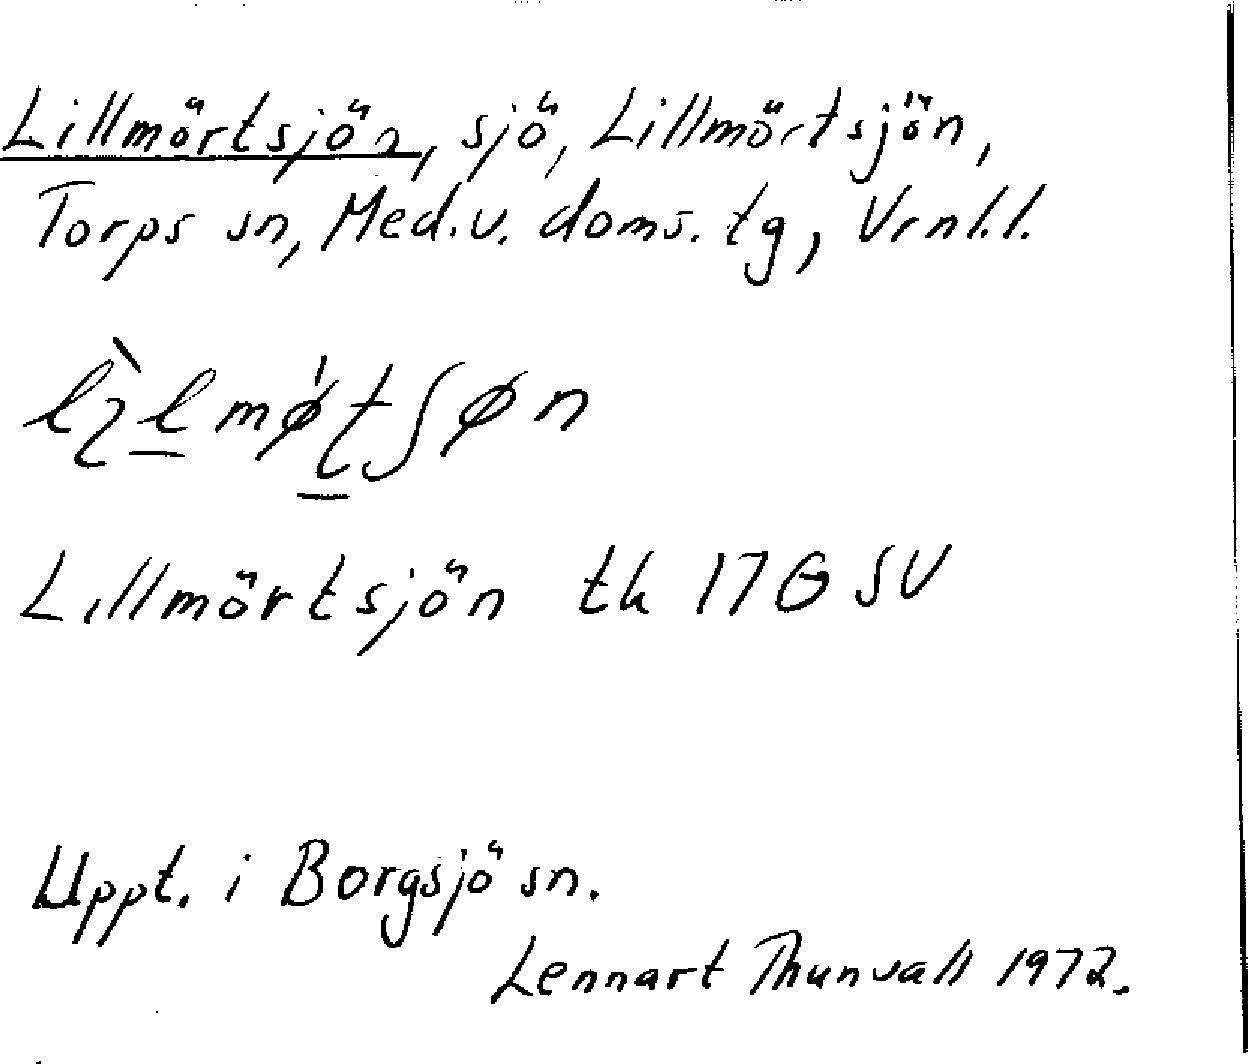 Lillmörtsjön, sjö, Lillmörtsjön,
Torps sn, Med.v. doms.tg, Vrnl.l.
Lillmörtsjön tk 17G SV
Uppt. i Borgsjö sn.
Lennart Thunvall 1972.